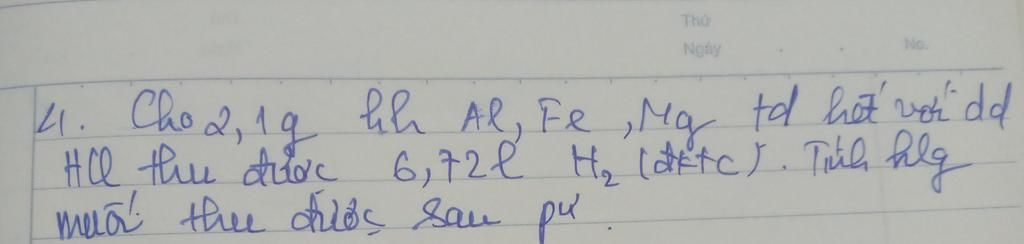 Thứ
Ngày No.
4. Cho 2,1g hh Al, Fe, Mg td hết với dd
HCl thu được 6,72l H₂ (đktc). Tính klg
muối thu được sau pư.